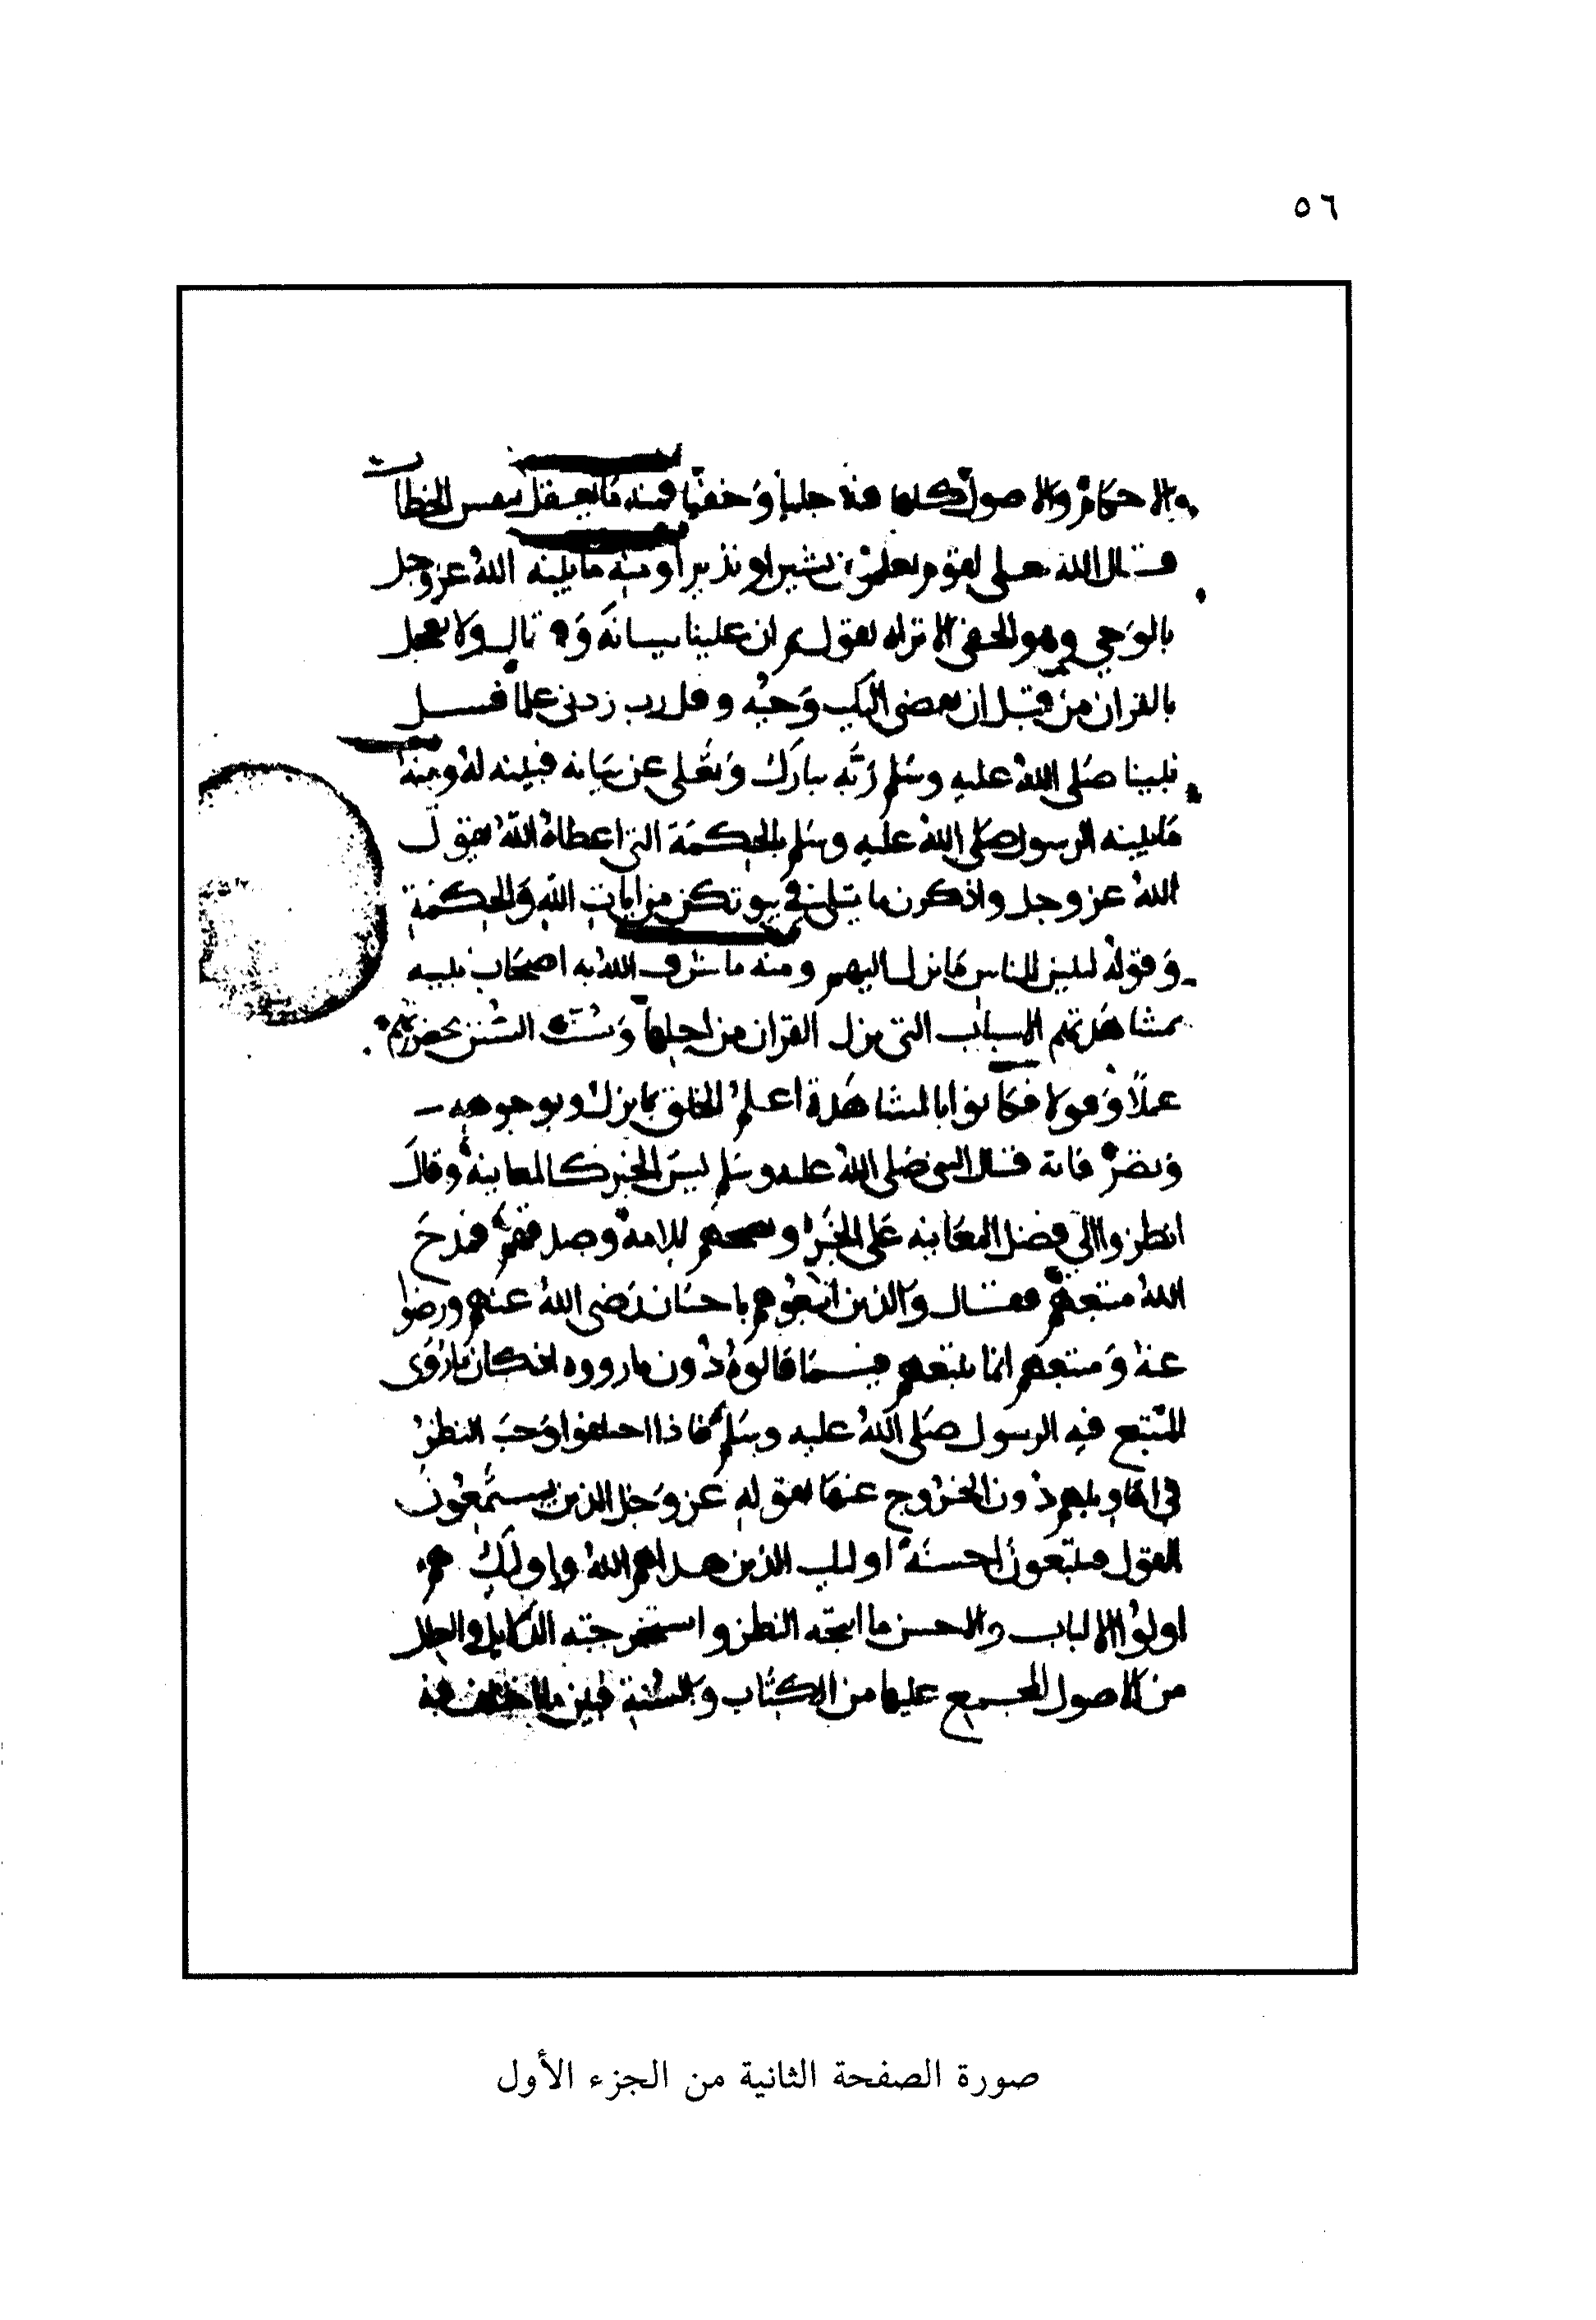 ٥٦
والاحكام والاصول كلها فيه جليا وخفيا فمنه ما يعقل بنفس الخطاب
قال الله تعلى لقوم يعلمون بشيرا ونذيرا ومنه ما يبينه الله عز وجل
بالوحي وهو الخفي الا تراه يقول ثم ان علينا بيانه و قال ولا تعجل
بالقران من قبل ان يقضى اليك وحيه وقل رب زدني علما فسل
نبينا صلى الله عليه وسلم ربه تبارك وتعلى عن بيانه فبينه له ومنه
ما بينه الرسول صلى الله عليه وسلم بالحكمة التي اعطاه الله بقول
الله عز وجل واذكرن ما يتلى في بيوتكن من ايات الله والحكمة
وقوله لتبين للناس ما نزل اليهم ومنه ما شرف الله به اصحاب نبيه
بمشاهدتهم الاسباب التي نزل القران من اجلها وسنت السنن بحضرتهم
عملا وقولا فكانوا بالمشاهدة اعلم الخلق بما نزل وبوجوهه
فانه قال النبي صلى الله عليه وسلم ليس الخبر كالمعاينة وقال
انظروا الى فضل المعاينة على الخبر للامة وصدقهم فمدح
الله متبعهم فقال والذين اتبعوهم باحسان رضي الله عنهم ورضوا
عنه ومتبعهم انما يتبعهم فيما قالوه دون ما رووه اذ كان ما روى
المتبع فيه الرسول صلى الله عليه وسلم فاذا اختلفوا وجب النظر
في اقاويلهم دون الخروج عنها لقوله عز وجل الذين يستمعون
القول فيتبعون احسنه اوليك الذين هداهم الله واوليك هم
اولوا الالباب والاحسن ما انتجه النظر واستخرجته الدلايل
من الاصول المجمع عليها من الكتاب والسنة فبين ما اختلف فيه
صورة الصفحة الثانية من الجزء الأول